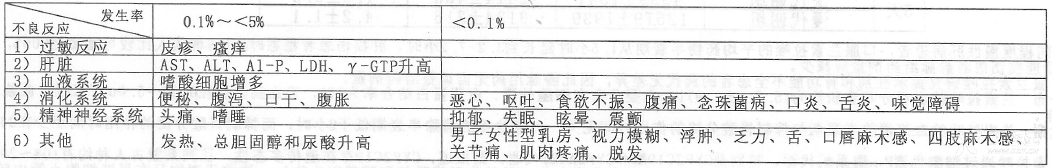 发生率 0.1%～<5% <0.1%
不良反应
1）过敏反应 皮疹、瘙痒
2）肝脏 AST、ALT、Al-P、LDH、γ-GTP升高
3）血液系统 嗜酸细胞增多
4）消化系统 便秘、腹泻、口干、腹胀 恶心、呕吐、食欲不振、腹痛、念珠菌病、口炎、舌炎、味觉障碍
5）精神神经系统 头痛、嗜睡 抑郁、失眠、眩晕、震颤
6）其他 发热、总胆固醇和尿酸升高 男子女性型乳房、视力模糊、浮肿、乏力、舌、口唇麻木感、四肢麻木感、
关节痛、肌肉疼痛、脱发